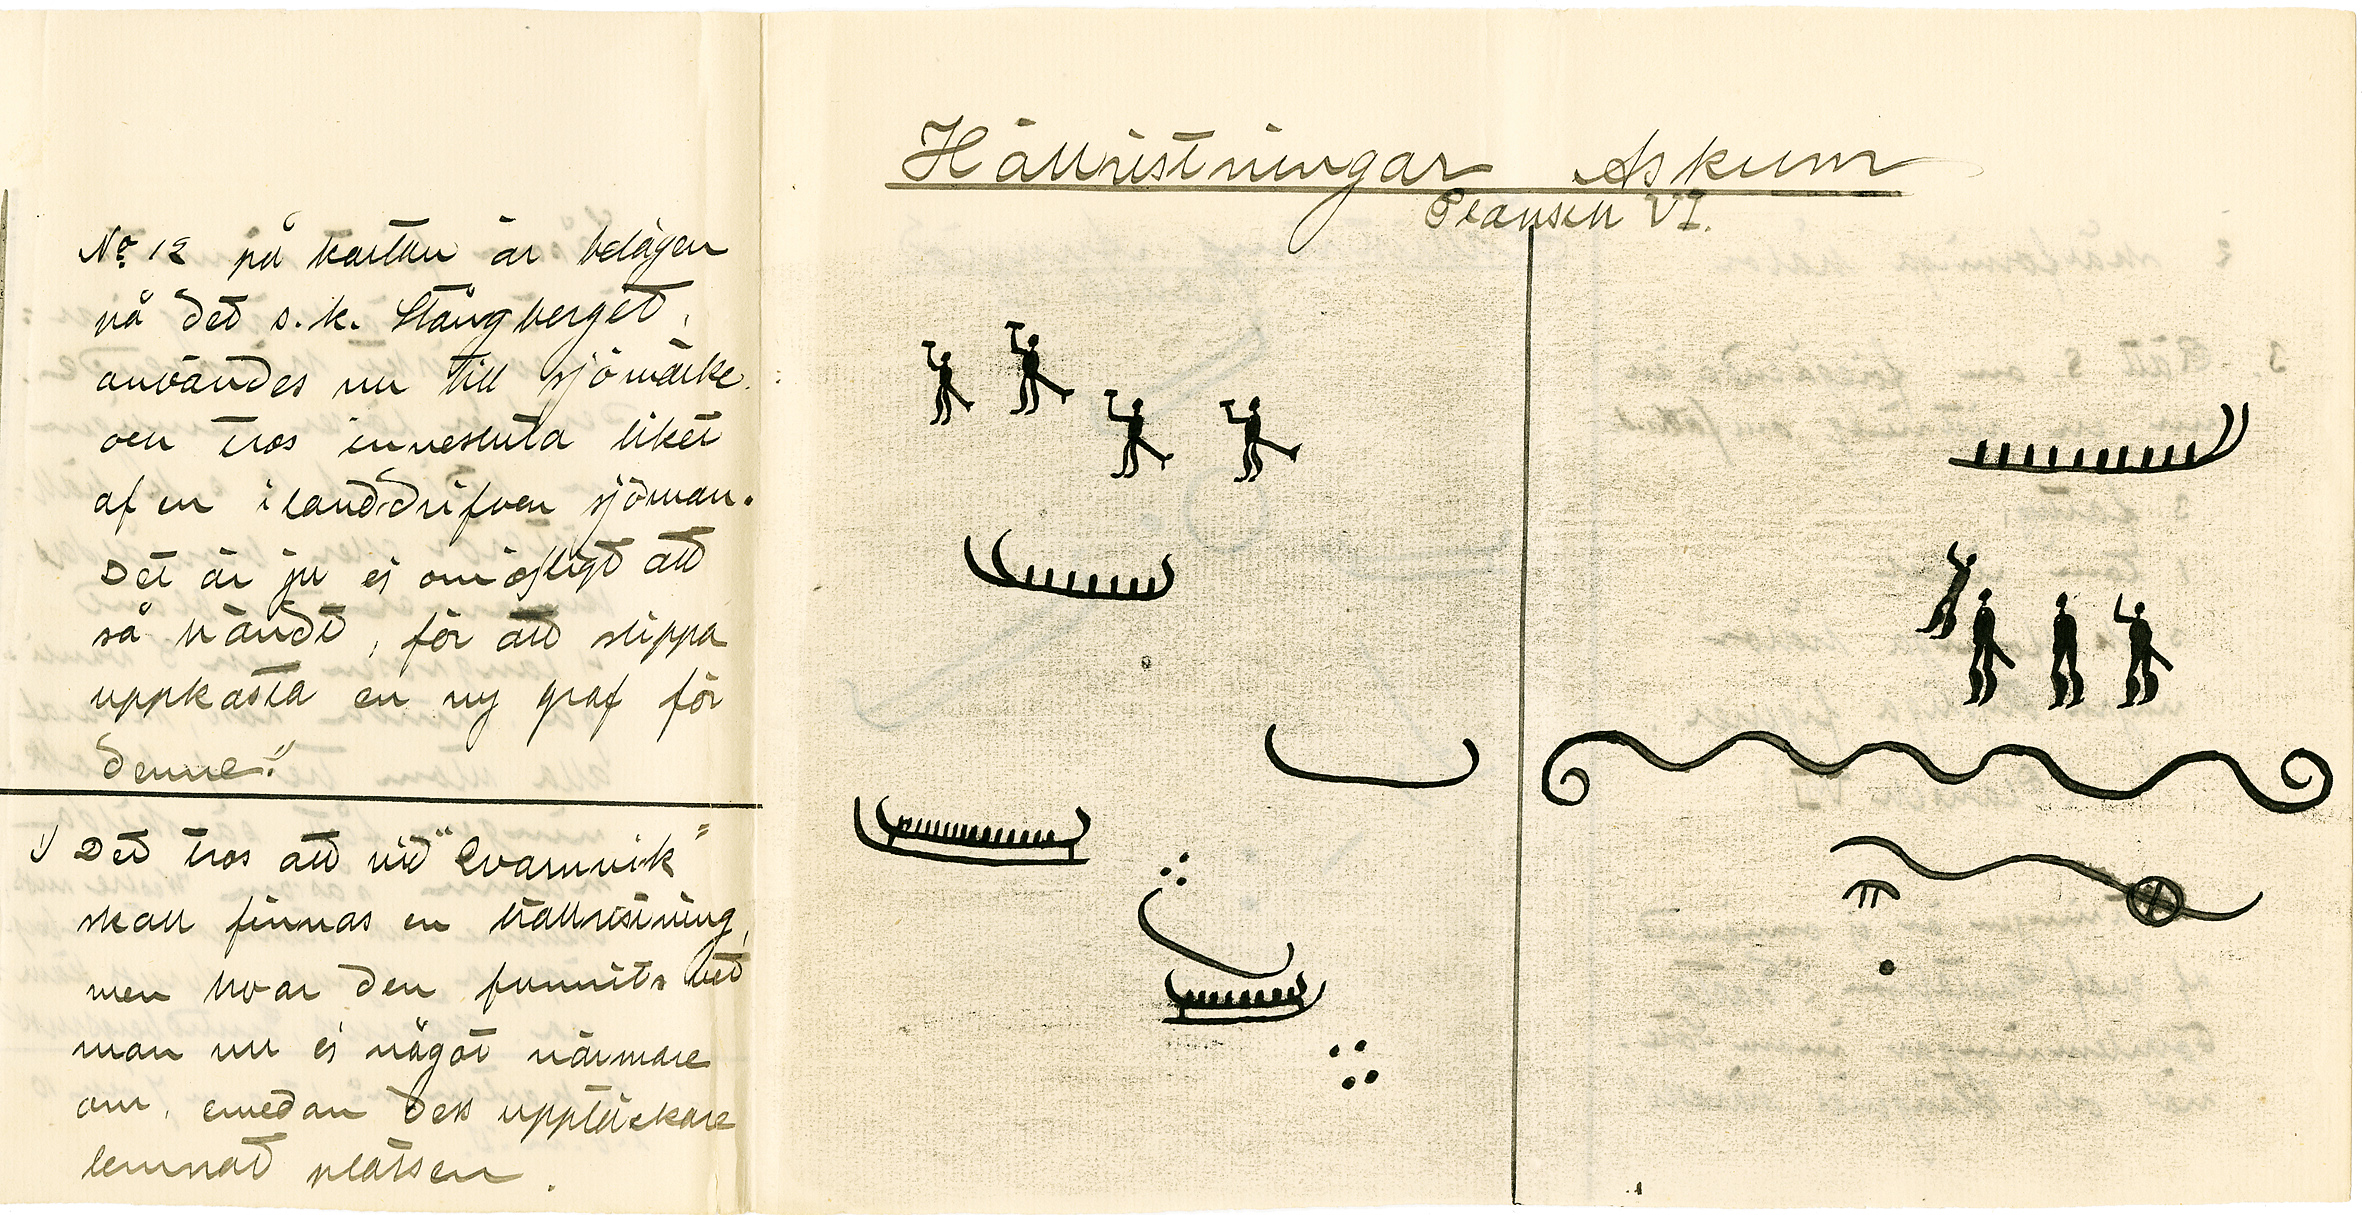 No. 12 på kartan är belägen
på det s.k. Stångberget,
användes nu till sjömärke.
och tros innesluta liket
af en ilanddrifven sjöman.
Det är ju ej omöjligt att
så händt, för att slippa
uppkasta en ny graf för
denne."
1) Det tros att vid "Qvarnvik"
skall finnas en hällristning,
men hvar den funnits vet
man nu ej något närmare
om, emedan dess upptäckare
lemnat platsen.
Hällristningar Askum
Plansch VI.